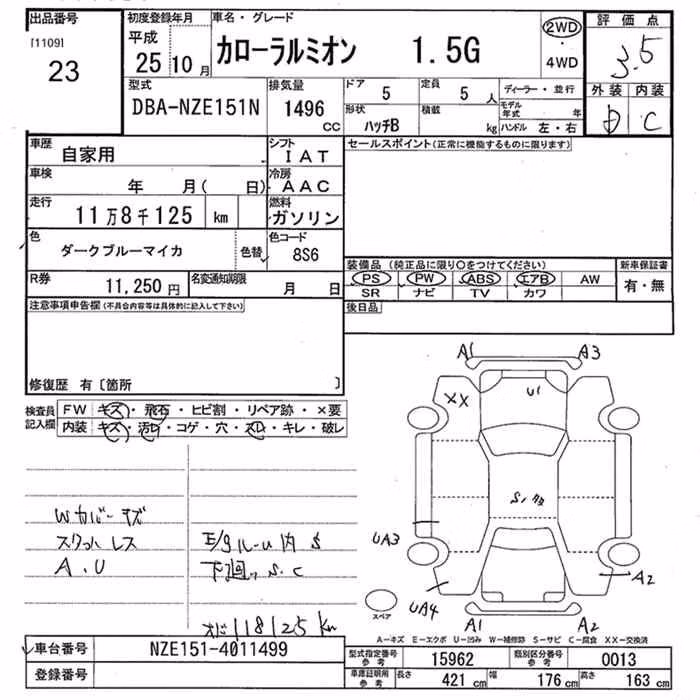 出品番号 初度登録年月 車名・グレード 2WD 評価点
[1109] 平成 カローラルミオン 1.5G ・ 3.5
23 25 10 月 4WD
型式 排気量 ドア 5 定員 5 人 ディーラー・並行 外装 内装
DBA-NZE151N 1496 cc 形状 ハッチB 積載 kg モデル年式 年 C
ハンドル 左・右
車歴 自家用 シフト IAT セールスポイント(正常に機能するものに限ります)
車検 年 月( 日) 冷房 AAC
走行 11万8千125 km 燃料 ガソリン
色 ダークブルーマイカ 色替 色コード 8S6
装備品 (純正品に限り○をつけてください) 新車保証書
R券 11,250 円 名変通知期限 月 日 PS PW ABS エアB AW 有・無
SR ナビ TV カワ
注意事項申告欄(不具合内容等は具体的に記入して下さい) 後日品
修復歴 有〔箇所 〕
検査員記入欄 FW キズ・飛石・ヒビ割・リペア跡・×要
内装 キズ・汚れ・コゲ・穴・スレ・キレ・破レ
A1 A3
XX U1
Wカバーキズ
スペアレス
A.U
内 S
下廻り S.C
UA3
A2
UA4
スペア
A1 A2
118125 km
A-キズ E-エクボ U-凹み W-補修跡 S-サビ C-腐食 XX-交換済
車台番号 NZE151-4011499 型式指定番号 参考 15962 類別区分番号 参考 0013
登録番号 車庫証明用 参考 長さ 421 cm 幅 176 cm 高さ 163 cm